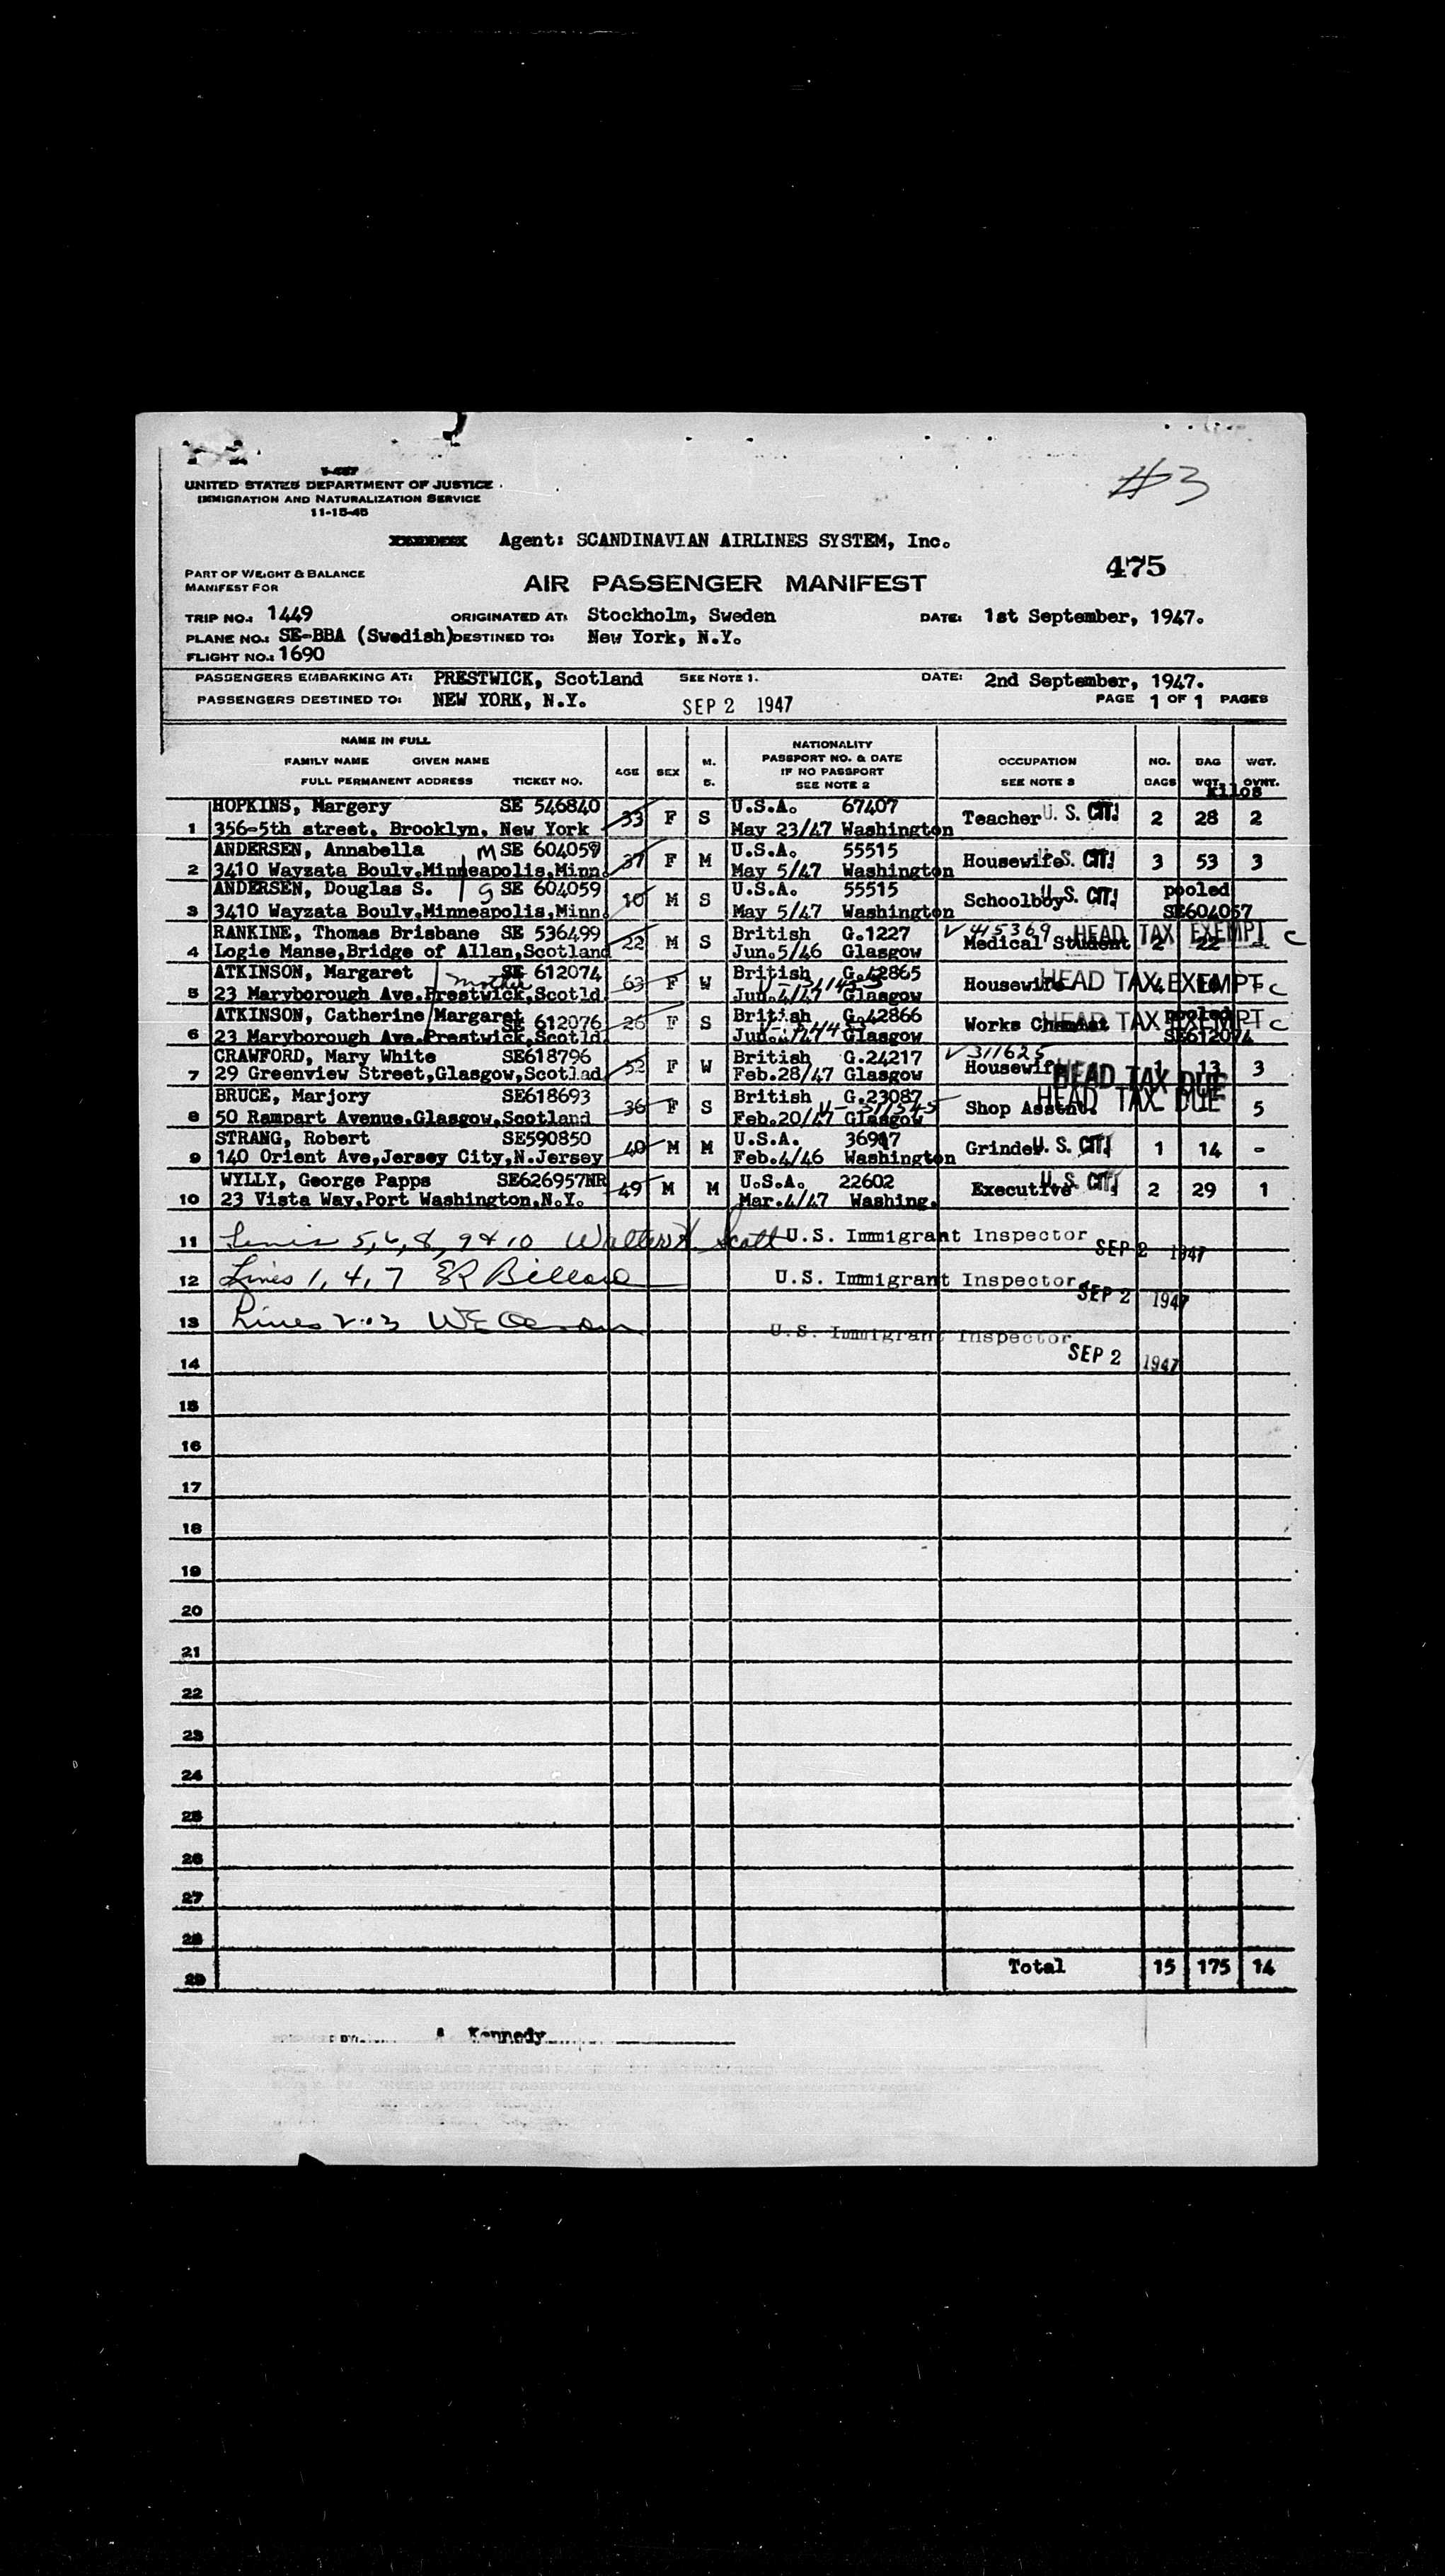 #3
V-487
UNITED STATES DEPARTMENT OF JUSTICE
IMMIGRATION AND NATURALIZATION SERVICE
11-15-45
Agent: SCANDINAVIAN AIRLINES SYSTEM, Inc.
475
PART OF WEIGHT & BALANCE
MANIFEST FOR
AIR PASSENGER MANIFEST
TRIP NO.: 1449 ORIGINATED AT: Stockholm, Sweden DATE: 1st September, 1947.
PLANE NO.: SE-BBA (Swedish) DESTINED TO: New York, N.Y.
FLIGHT NO.: 1690
PASSENGERS EMBARKING AT: PRESTWICK, Scotland SEE NOTE 1. DATE: 2nd September, 1947.
PASSENGERS DESTINED TO: NEW YORK, N.Y. SEP 2 1947 PAGE 1 OF 1 PAGES
NAME IN FULL
FAMILY NAME GIVEN NAME
FULL PERMANENT ADDRESS TICKET NO.
AGE SEX M. S.
NATIONALITY
PASSPORT NO. & DATE
IF NO PASSPORT
SEE NOTE 2
OCCUPATION
SEE NOTE 3
NO. BAGS
BAG WGT.
WGT. OVNT.
Kilos
HOPKINS, Margery SE 546840 U.S.A. 67407
1 356-5th street, Brooklyn, New York 33 F S May 23/47 Washington Teacher U. S. CIT. 2 28 2
ANDERSEN, Annabella M SE 604057 U.S.A. 55515
2 3410 Wayzata Boulv,Minneapolis,Minn. 37 F M May 5/47 Washington Housewife U.S. CIT. 3 53 3
ANDERSEN, Douglas S. G SE 604059 U.S.A. 55515 pooled
3 3410 Wayzata Boulv,Minneapolis,Minn. 10 M S May 5/47 Washington Schoolboy U.S. CIT. SE604057
RANKINE, Thomas Brisbane SE 536499 British G.1227 V 415369 HEAD TAX EXEMPT C
4 Logie Manse,Bridge of Allan,Scotland 22 M S Jun.5/46 Glasgow Medical Student 2 22 -
ATKINSON, Margaret mother SE 612074 British G.42865
5 23 Maryborough Ave.Prestwick,Scotld. 63 F W Jun.4/47 Glasgow Housewife HEAD TAX EXEMPT C
ATKINSON, Catherine Margaret SE 612076 British G.42866 pooled
6 23 Maryborough Ave.Prestwick,Scotld. 26 F S Glasgow Works Chemist HEAD TAX EXEMPT C SE612074
CRAWFORD, Mary White SE618796 British G.24217 V 311625
7 29 Greenview Street,Glasgow,Scotlad. 52 F W Feb.28/47 Glasgow Housewife HEAD TAX DUE 1 13 3
BRUCE, Marjory SE618693 British G.23087
8 50 Rampart Avenue,Glasgow,Scotland 36 F S Feb.20/47 Glasgow Shop Asstnt. HEAD TAX DUE 5
STRANG, Robert SE590850 U.S.A. 36917
9 140 Orient Ave,Jersey City,N.Jersey 40 M M Feb.4/46 Washington Grinder U. S. CIT. 1 14 -
WYLLY, George Papps SE626957NR U.S.A. 22602
10 23 Vista Way,Port Washington,N.Y. 49 M M Mar.4/47 Washing. Executive U. S. CIT. 2 29 1
11 Lines 5,6,8,9 & 10 Walter Scott U.S. Immigrant Inspector SEP 2 1947
12 Lines 1, 4, 7 U.S. Immigrant Inspector SEP 2 1947
13 Lines 2 U.S. Immigrant Inspector
14 SEP 2 1947
15
16
17
18
19
20
21
22
23
24
25
26
27
28
29 Total 15 175 14
Kennedy